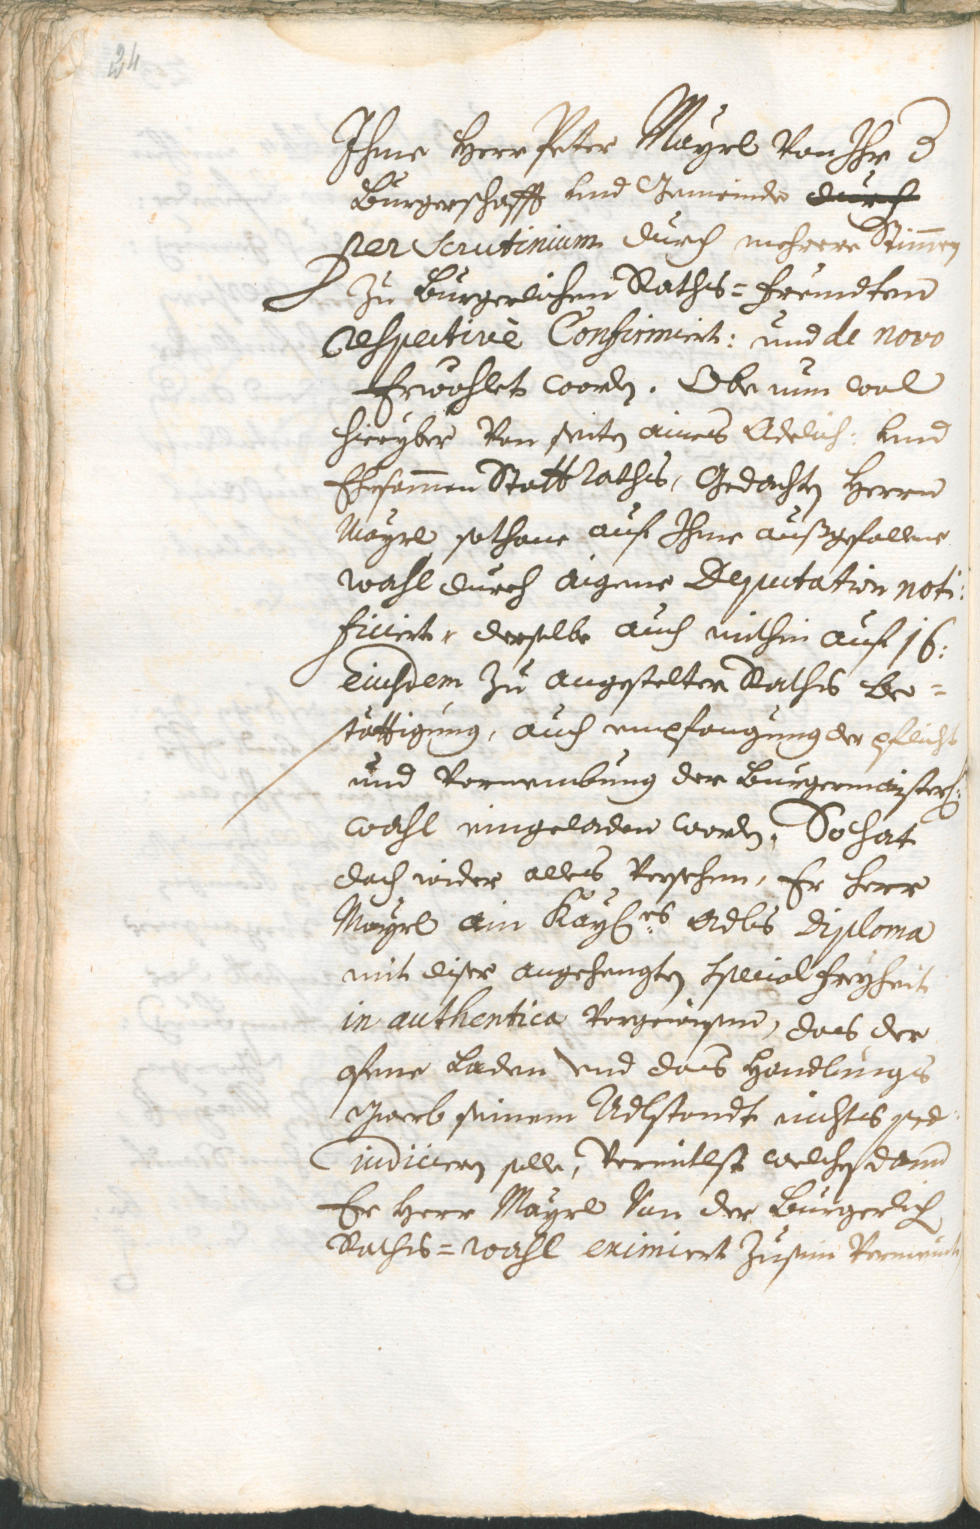 24
Ihme Herr Peter Mayrl von Ihr
Burgerschafft und Gemeinde durch
per Scrutinium durch mehrere Stimen
zu Burgerlichen Raths=freundten
respective Confirmiert: und de novo
Erwöhlet worden. Obe nun wol
hieryber von seiten aines Adelich: und
Ehrsammen Statt Raths, Gedachten Herrn
Mayrl sothane auf Ihme außgefallene
wahl durch aigene Deputation noti:
ficiert, derselbe auch mithin auf 16:
eiusdem zu angestelter Raths be=
stättigung, auch empfangung der pflicht
und Vornembung der Burgermaister
wahl eingeladen worden, So hat
doch wider alles Versehen, Er Herr
Mayrl ain Kay: Adls Diploma
mit diser angehengten special freyheit
in authentica Vorgewisen, das der
ofene Laden und das Handlungs
Gwerb seinem Adlstandt nichts præ:
iudicieren solle, Vermitlst welchen dann
Er Herr Mayrl Von der Burgerlich
Raths=wahl eximiert zu sein Vermeint